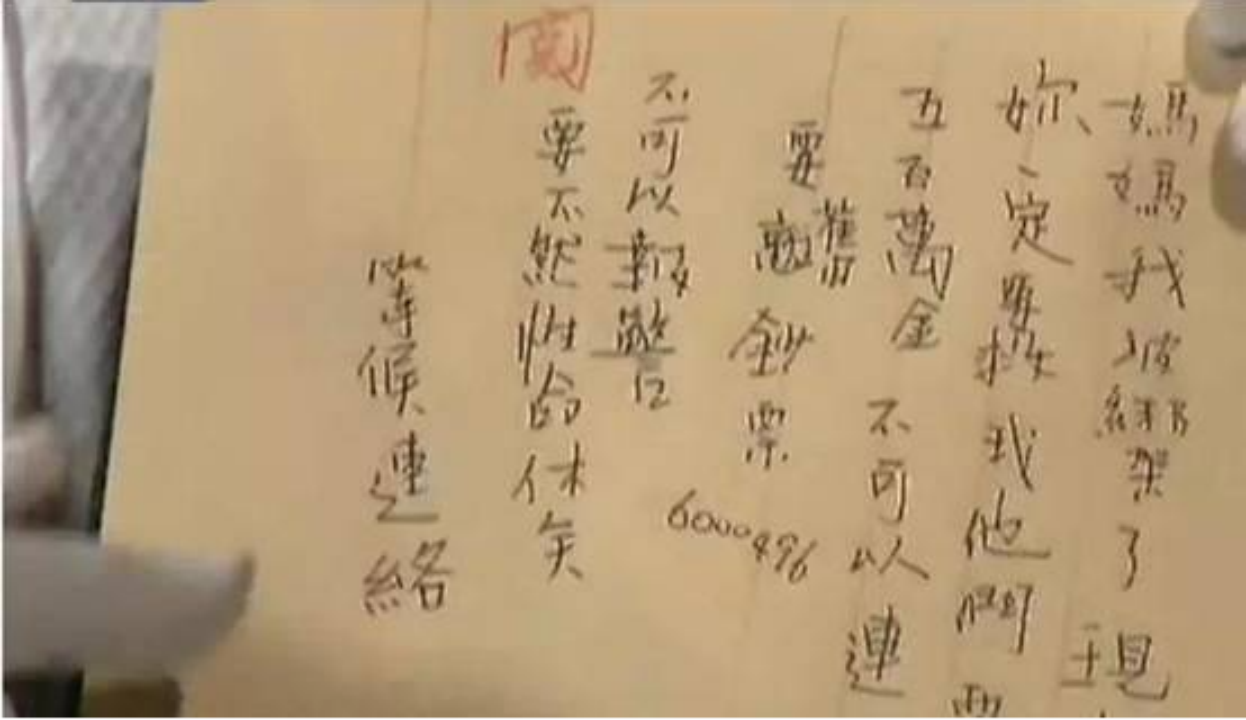 媽媽我被綁架了現
妳一定要救我他們要
五百萬金 不可以連
要舊鈔票
6000496
不可以報警
要不然性命休矣
等候連絡